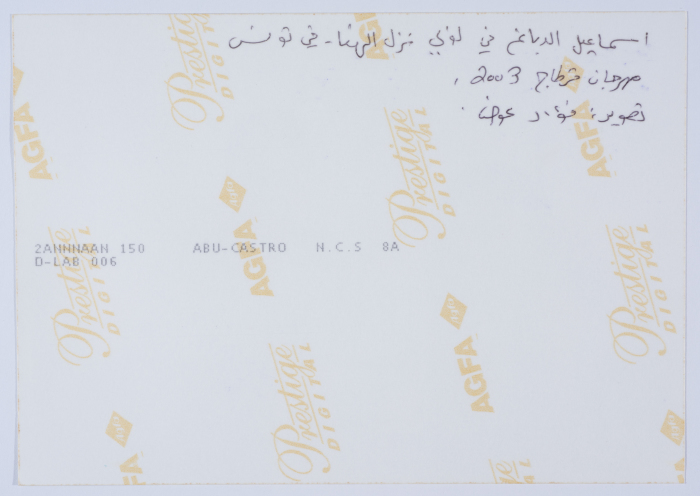 اسماعيل الدباغ في لوبي نزل الهنا - في تونس
مهرجان قرطاج 2003 ،
تصوير: فؤاد عوض .
2ANNNAAN 150 ABU-CASTRO N.C.S 8A
D-LAB 006
Prestige
DIGITAL
AGFA
AGFA
Prestige
DIGITAL
AGFA
AGFA
Prestige
DIGITAL
Prestige
DIGITAL
AGFA
Prestige
DIGITAL